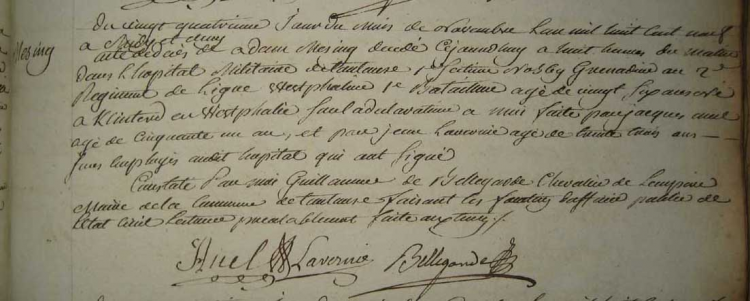 Mesing
du vingt quatrieme Jour du Mois de Novembre l'an mil huit cent neuf
a Midy et demy
acte de décès de adam Mesing decedé Cejourdhuy a huit heures du matin
dans l'hopital Militaire de tantause 1e section Grenadier au 2e
Regiment de Ligne Westphalien 1e Bataillon agé de vingt six ans né
a en Westphalie sur la declaration a moi faite par jacques auel
agé de cinquante un an, et par jean Lavernie agé de trente trois ans
tous Employes audit hopital qui ont signé
Constaté Par moi Guillaume de Bellegarde Chevalier de Lempire
Maire de la Commune de tantause faisant les fonctions d'officier public de
l'Etat Civil Lecture prealablement faite aux
Auel Lavernie Bellegarde